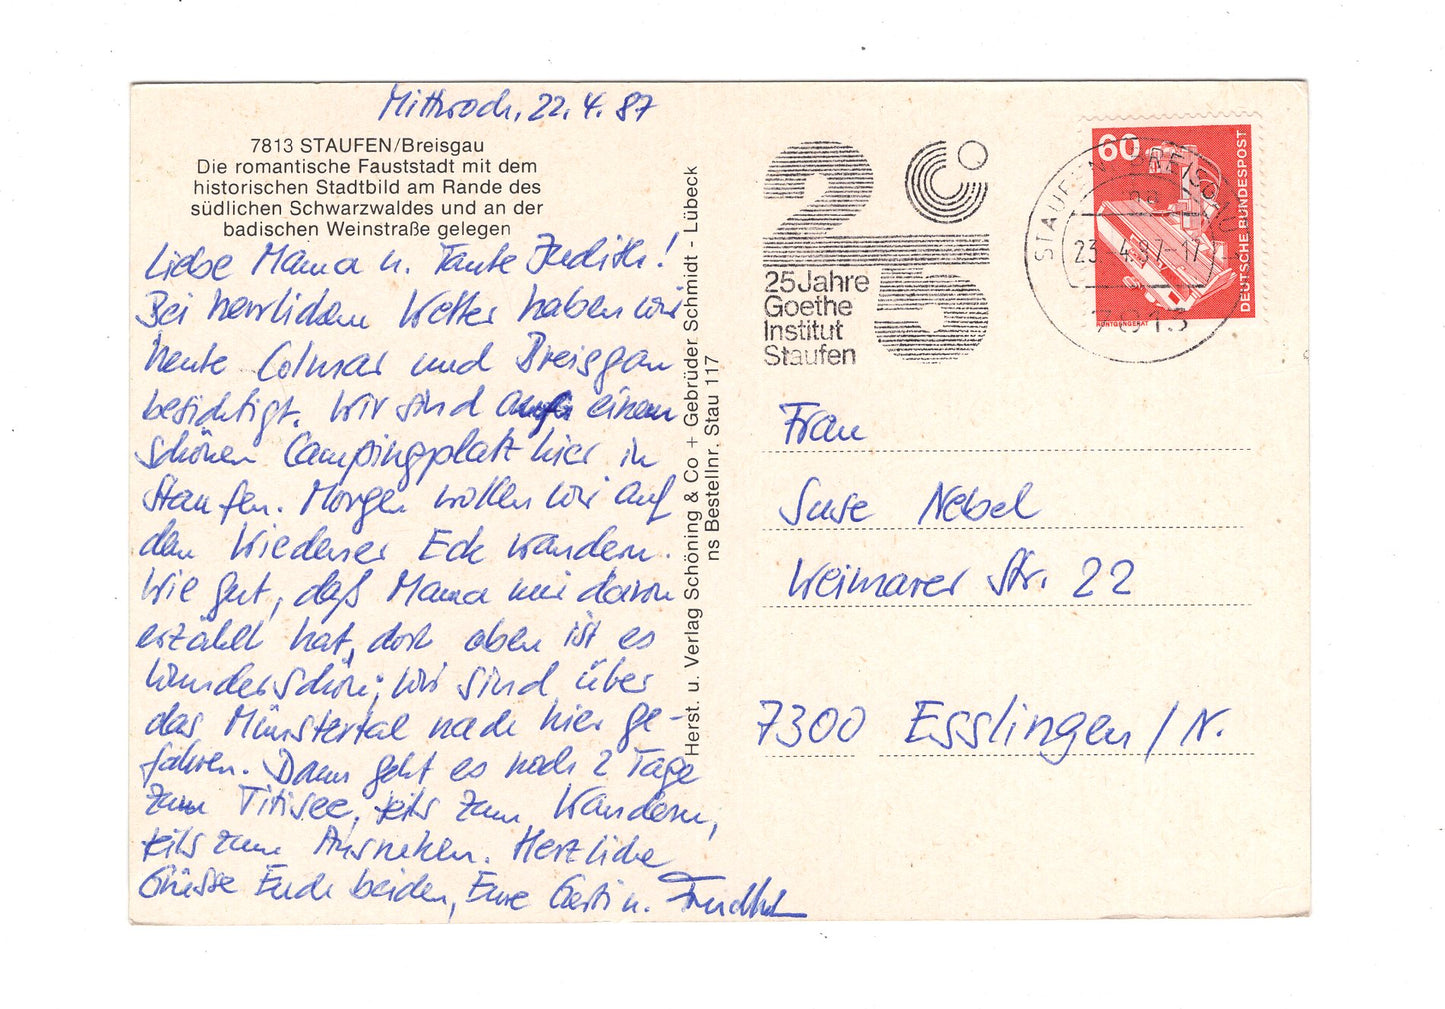 Mittwoch, 22.4.87
7813 STAUFEN/Breisgau
Die romantische Fauststadt mit dem
historischen Stadtbild am Rande des
südlichen Schwarzwaldes und an der
badischen Weinstraße gelegen
Liebe Mama u. Tante Judith!
Bei herrlichem Wetter haben wir
heute Colmar und Breisgau
besichtigt. Wir sind auf einem
schönen Campingplatz hier in
Staufen. Morgen wollen wir auf
den Wiedener Eck wandern.
Wie gut, daß Mama mir davon
erzählt hat, dort oben ist es
wunderschön; wir sind über
das Münstertal nach hier ge-
fahren. Dann geht es noch 2 Tage
zum Titisee, teils zum Wandern,
teils zum Ausruhen. Herzliche
Grüsse Euch beiden, Eure Gerti u.
Herst. u. Verlag Schöning & Co + Gebrüder Schmidt - Lübeck
ns Bestellnr. Stau 117
25
25 Jahre
Goethe
Institut
Staufen
STAUFEN, BREISGAU
23.-4.87-17
7813
60
DEUTSCHE BUNDESPOST
RÖNTGENGERÄT
Frau
Suse Nebel
Weimarer Str. 22
7300 Esslingen/N.